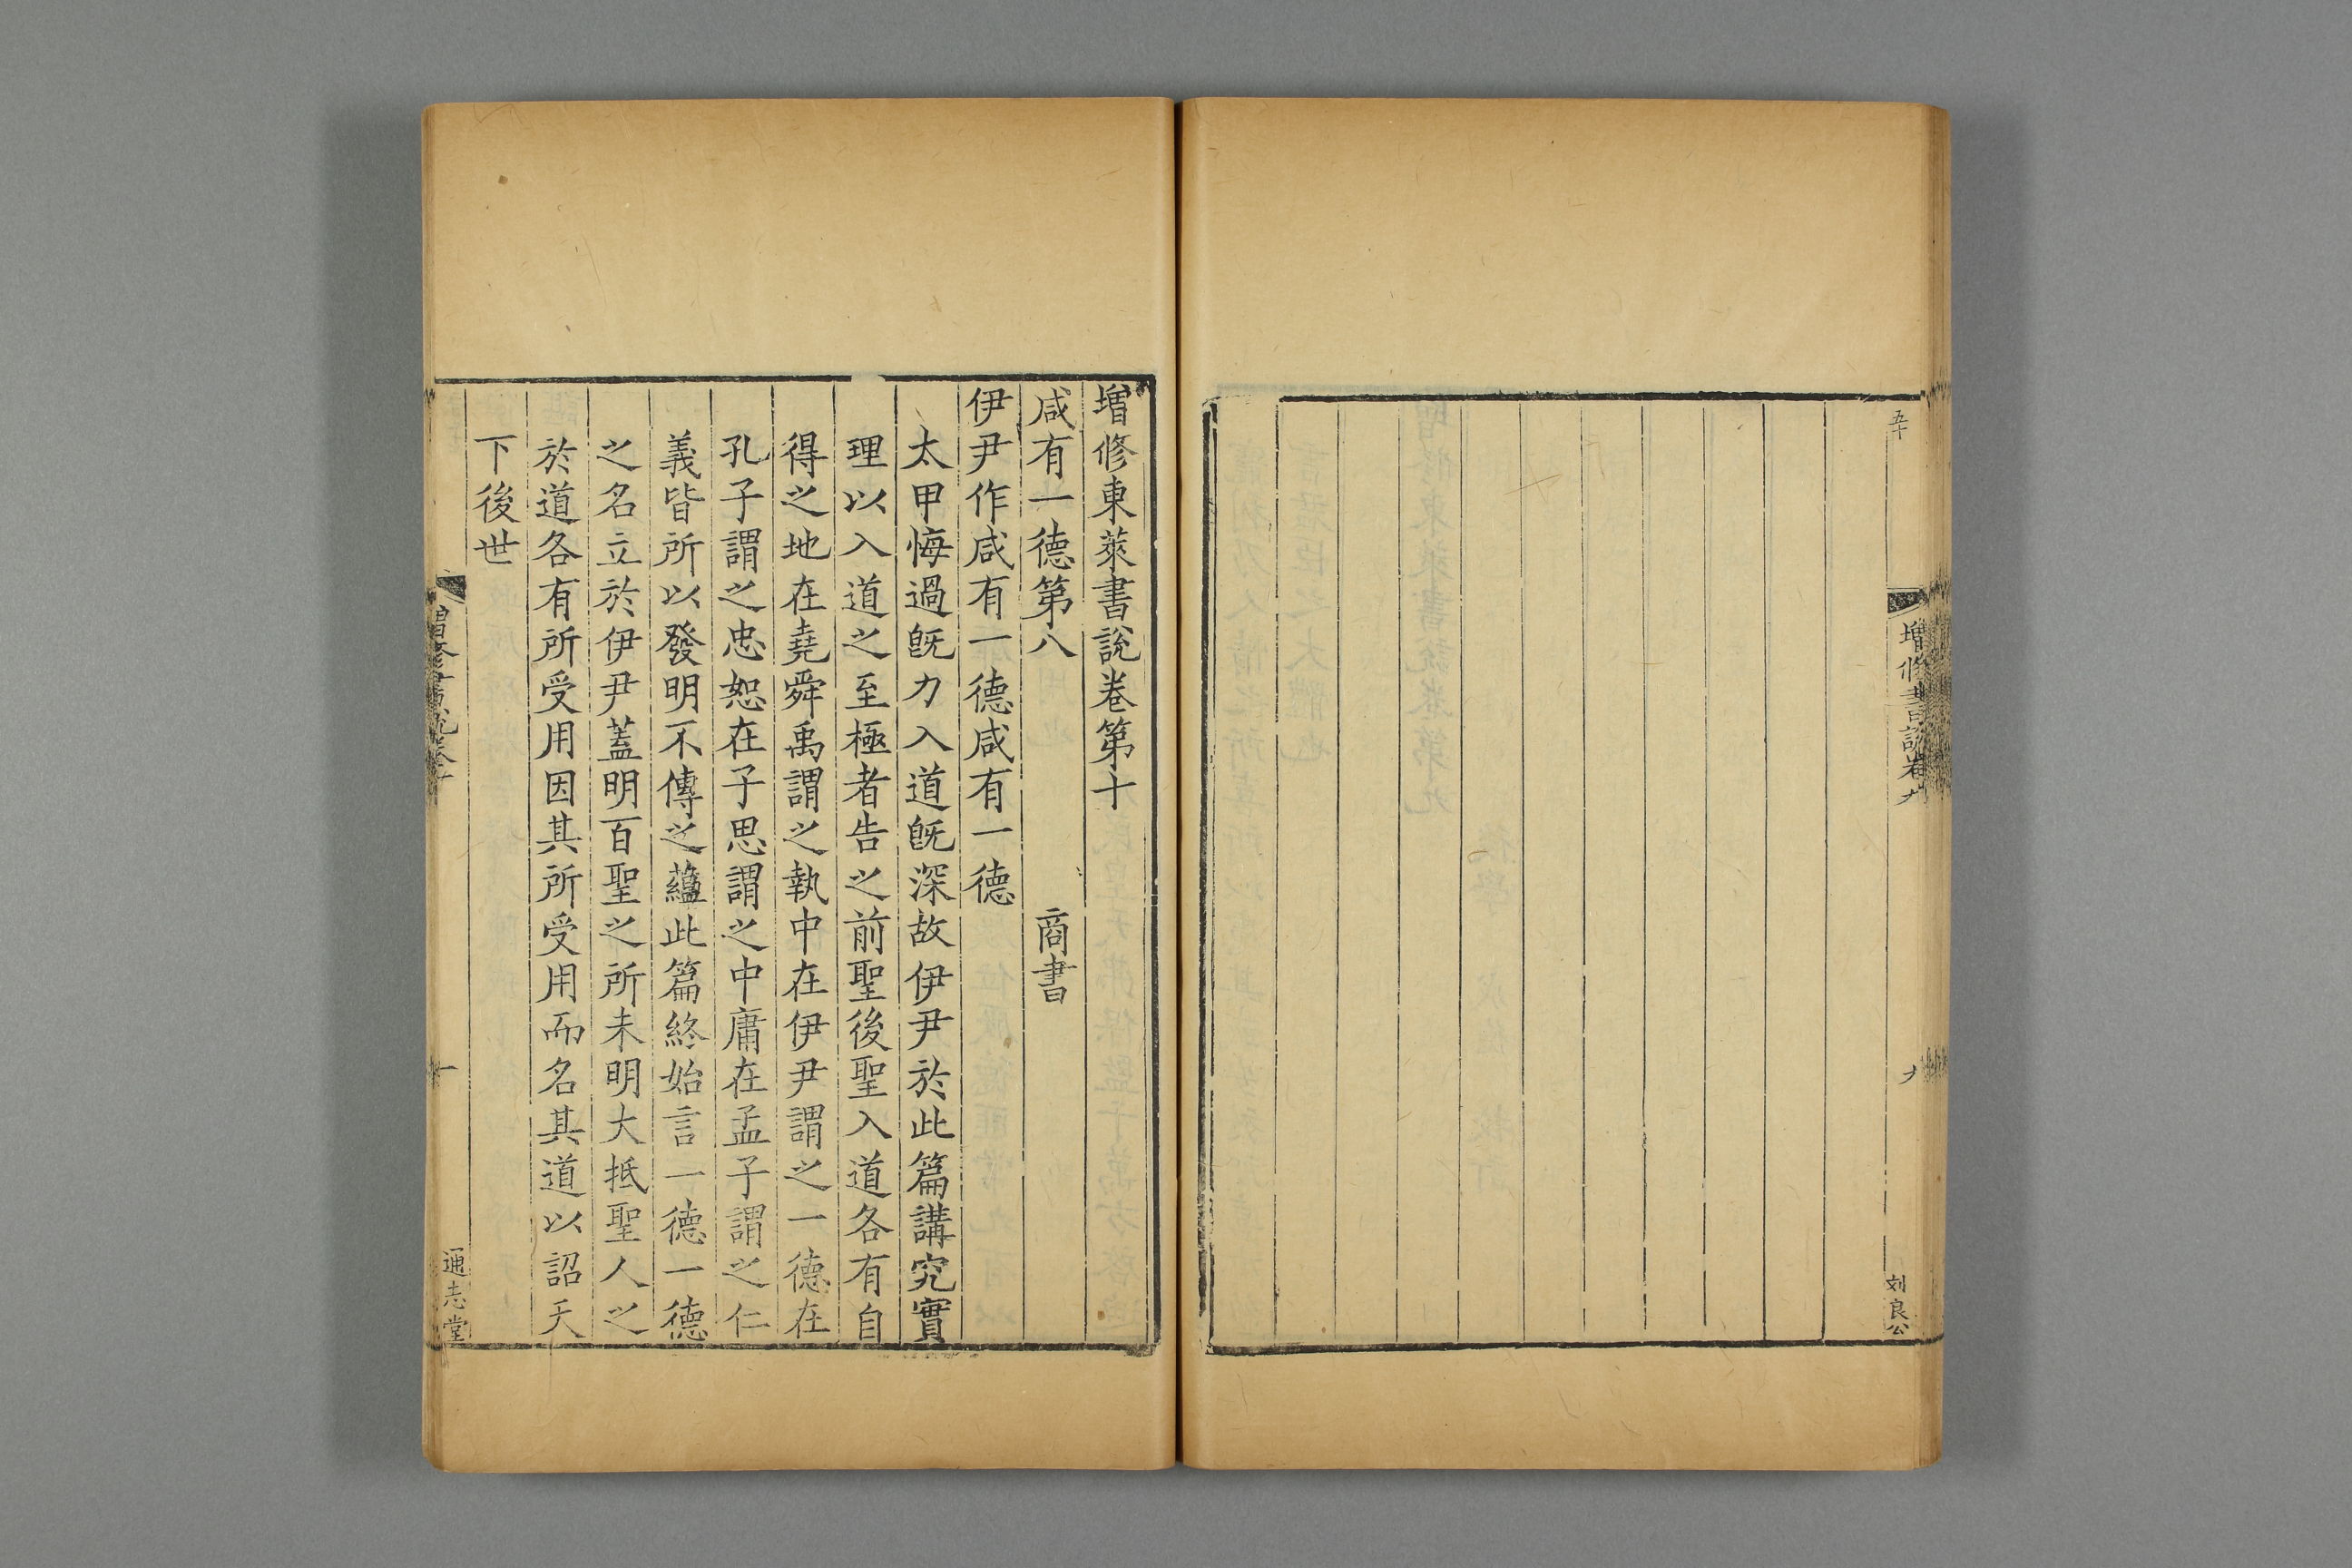 五十
增修書說卷九
九
刘良公
增修東萊書說卷第十
咸有一德第八　商書
伊尹作咸有一德咸有一德
太甲悔過旣力入道旣深故伊尹於此篇講究實
理以入道之至極者告之前聖後聖入道各有自
得之地在堯舜禹謂之執中在伊尹謂之一德在
孔子謂之忠恕在子思謂之中庸在孟子謂之仁
義皆所以發明不傳之蘊此篇終始言一德一德
之名立於伊尹蓋明百聖之所未明大抵聖人之
於道各有所受用因其所受用而名其道以詔天
下後世
增修書說卷十
一
通志堂